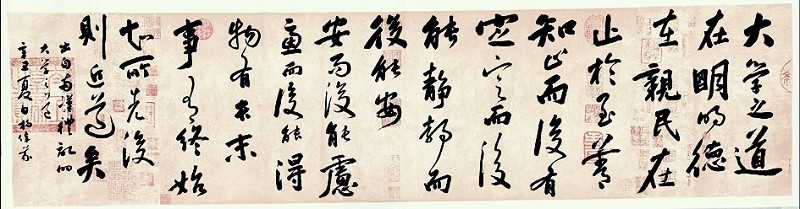 大学之道
在明明德
在親民在
止於至善
知止而後有
定定而後
能静静而
後能安
安而後能慮
慮而後能得
物有本末
事有終始
知所先後
則近道矣
出自 禮記
大学